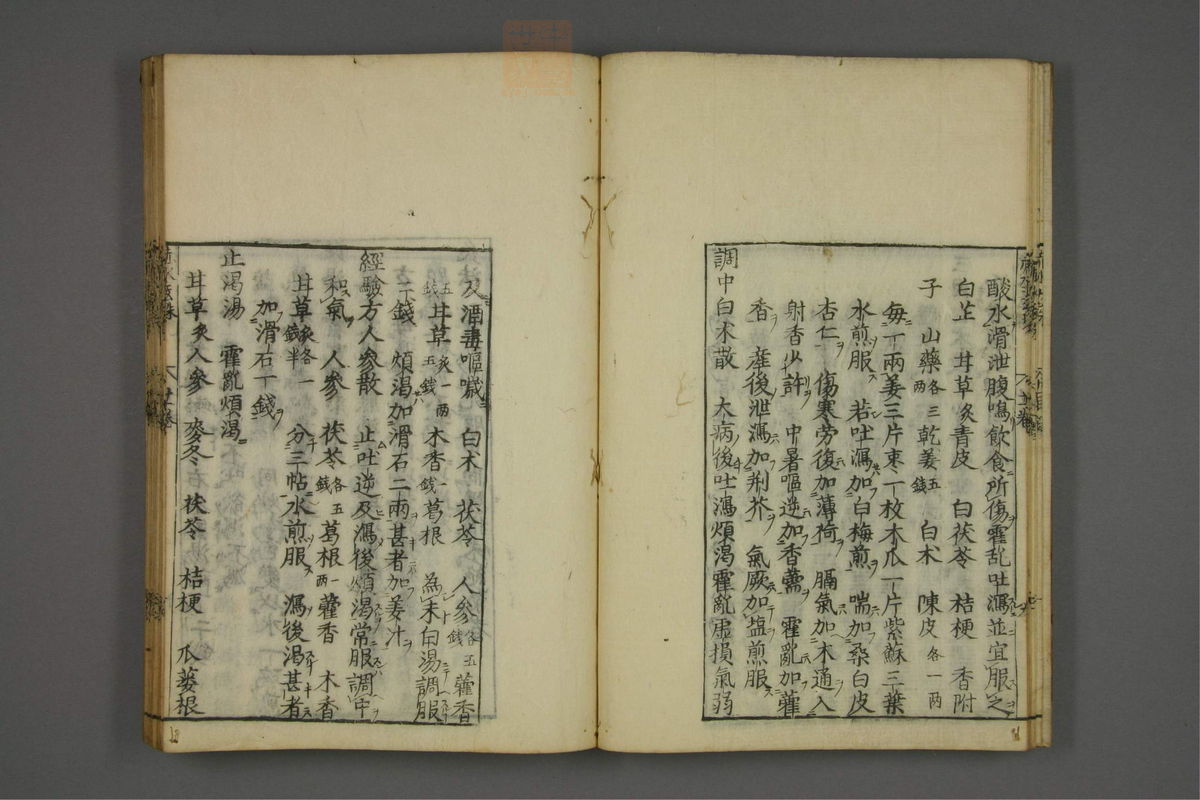 酸水滑泄腹鳴飲食所傷霍乱吐瀉並宜服之
白芷　甘草炙青皮　白茯苓　桔梗　香附
子　山藥各三両乾姜五銭　白朮　陳皮各一两
毎一兩姜三片枣一枚木瓜一片紫蘇三葉
水煎服　若吐瀉加白梅煎　喘加桑白皮
杏仁　傷寒劳復加薄荷　膈氣加木通入
射香少許　中暑嘔逆加香薷　霍亂加藿
香　産後泄瀉加荆芥　氣厥加塩煎服
調中白朮散　大病後吐瀉煩渴霍亂虚損氣弱
及酒毒嘔噦　白朮　茯苓　人參各五銭藿香
五銭甘草炙一两五銭木香一銭葛根　為末白湯調服
二錢　煩渴加滑石二兩甚者加姜汁
經驗方人參散　止吐逆及瀉後煩渴常服調中
和氣　人參　茯苓各五銭葛根一两藿香　木香
甘草炙各一銭半　分三帖水煎服　瀉後渴甚者
加滑石一錢
止渴湯　霍亂煩渴
甘草炙人參　麥冬　茯苓　桔梗　瓜蒌根